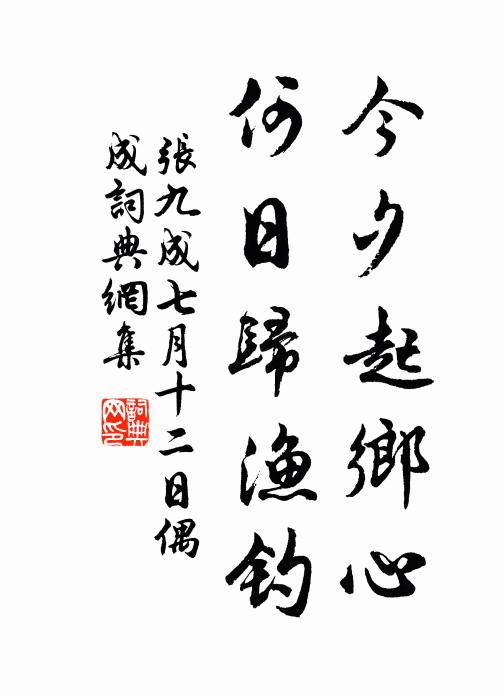 今夕起鄉心
何日歸漁釣
張九成七月十二日偶
成詞典網集
詞典
网印